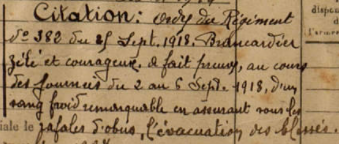 Citation: Ordre du Régiment
N° 382 du 25 Sept. 1918. Brancardier
zélé et courageux. a fait preuve, au cours
des journées du 2 au 6 Sept. 1918, d'un
sang froid remarquable en assurant sous les
rafales d'obus, l'évacuation des blessés.